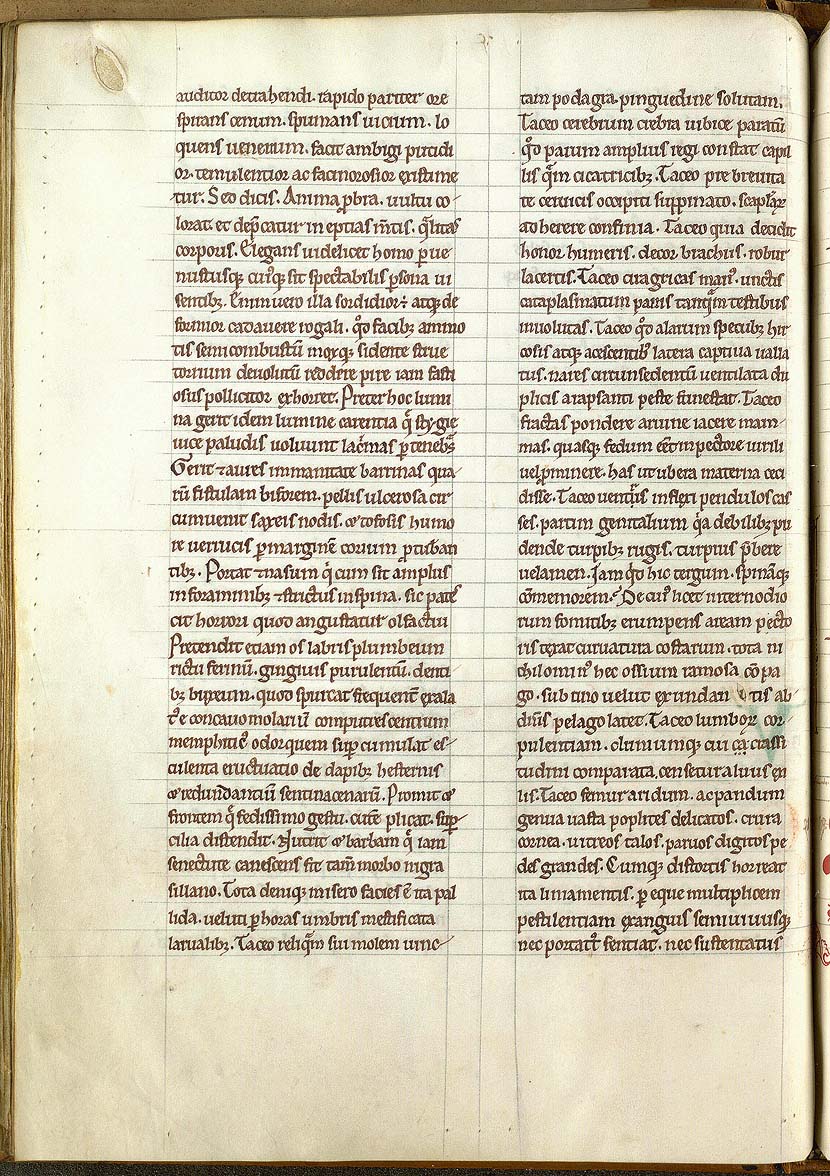 auditor detrahendi. rapido pariter ore
spirans cenum. spumans uicium. lo
quens uenenum. facit ambigi putidi
or. temulentior ac facinorosior existime
tur. Sed dicis. Anima ꝓbra. uultu co-
lorat. et dep̃catur ineptias m̃tis. q̃litas
corporis. Elegans uidelicet homo ꝑ ue
nustusq; cuiꝰq; sit spectabilis ꝑsona ui
sentibꝫ. Enim uero illa sordidior ÷ atq; de
formior cadauere rogali. qd̊ facibꝫ ammo
tis semicombustũ moxq; sidente strue
torrium deuolutũ reddere pire iam fasti
osus pollictor exhorret. Preter hoc lumi
na gerit idem lumine carentia q̃ stygie
uice paludis uoluunt lac̃mas ꝑ tenebꝰ
Gerit ⁊ aures immanitate barrinas qua
rũ fistulam biforem. pellis ulcerosa cir
cumuenit saxeis nodis. et tofosis humo
re uerrucis ꝑ marginẽ coruum ꝓtub̃an
tibꝫ. Portat ⁊ nasum q̃ cum sit amplus
in foraminibꝫ ⁊ strictus in spina. sic pates
cit horrori quod angustatur olfactui
Pretendit etiam os labris plumbeum
rictu ferinũ. gingiuis purulentũ. denti
bꝫ buxeum. quod spurcat frequent̃ exala
tꝰ e concauo molariũ computrescentium
memphiticꝰ odor quem suꝑcumulat es-
culenta eructuatio de dapibꝫ hesternis
et redundantiũ sentina cenarũ. Promit et
frontem q̃ fedissimo gestu. cutẽ plicat. suꝑ-
cilia distendit. Nutrit et barbam q̃ iam
senectute canescens fit tam̃ morbo nigra
sillano. Tota deniq; misero facies ẽ ita pal
lida. ueluti ꝑ horas umbris mestificata
larualibꝫ. Taceo reliq̃m sui molem uinc-
tam podagra. pinguedine solutam.
Taceo cerebrum crebra uibice paratũ
qd̊ parum amplius tegi constat capil
lis q̃m cicatricibꝫ. Taceo pre breuita
te ceruicis occipiti suppinato. scaplaꝝ
adherere confinia. Taceo quia decidit
honor humeris. decor brachiis. robur
lacertis. Taceo ciragricas manꝰ. unctis
cataplasmatum panis tanq̃m cestibus
inuolutas. Taceo qd̊ alarum specubꝫ hir
cosis atq; acescentibꝰ latera captiua ualla
tus. nares circunsedentũ uentilata du
plicis ampsanti peste funestat. Taceo
fractas pondere aruine iacere mam-
mas. quasq; fedum eẽt in pectore uirili
uel ꝓminere. has ut ubera materna ceci
disse. Taceo uentris inflexi pendulos cas
ses. partim genitalium q̃a debilibꝫ pu
dende turpibꝫ rugis. turpius p̃bere
uelamen. Iam qd̊ hic tergum. spinãq;
cõmemorem. De cuiꝰ licet internodio
rum fomitibꝫ erumpens aream pecto
ris tegat curuatura costarum. tota ni
chilominꝰ hec ossium ramosa cõpa
go. sub uno uelut exundan tis ab-
diĩs pelago latet. Taceo lumboꝝ cor-
pulentiam. cluniumq; cui ca crassi
tudini comparata. censetur aluus ex
lis. Taceo femur aridum. ac pandum
genua uasta poplites delicatos. crura
cornea. uitreos talos. paruos digitos pe
des grandes. Cumq; distortis horreat
ita liniamentis. ꝑ eque multiplicem
pestilentiam exanguis semiuiuusq;
nec portatꝰ sentiat. nec sustentatus